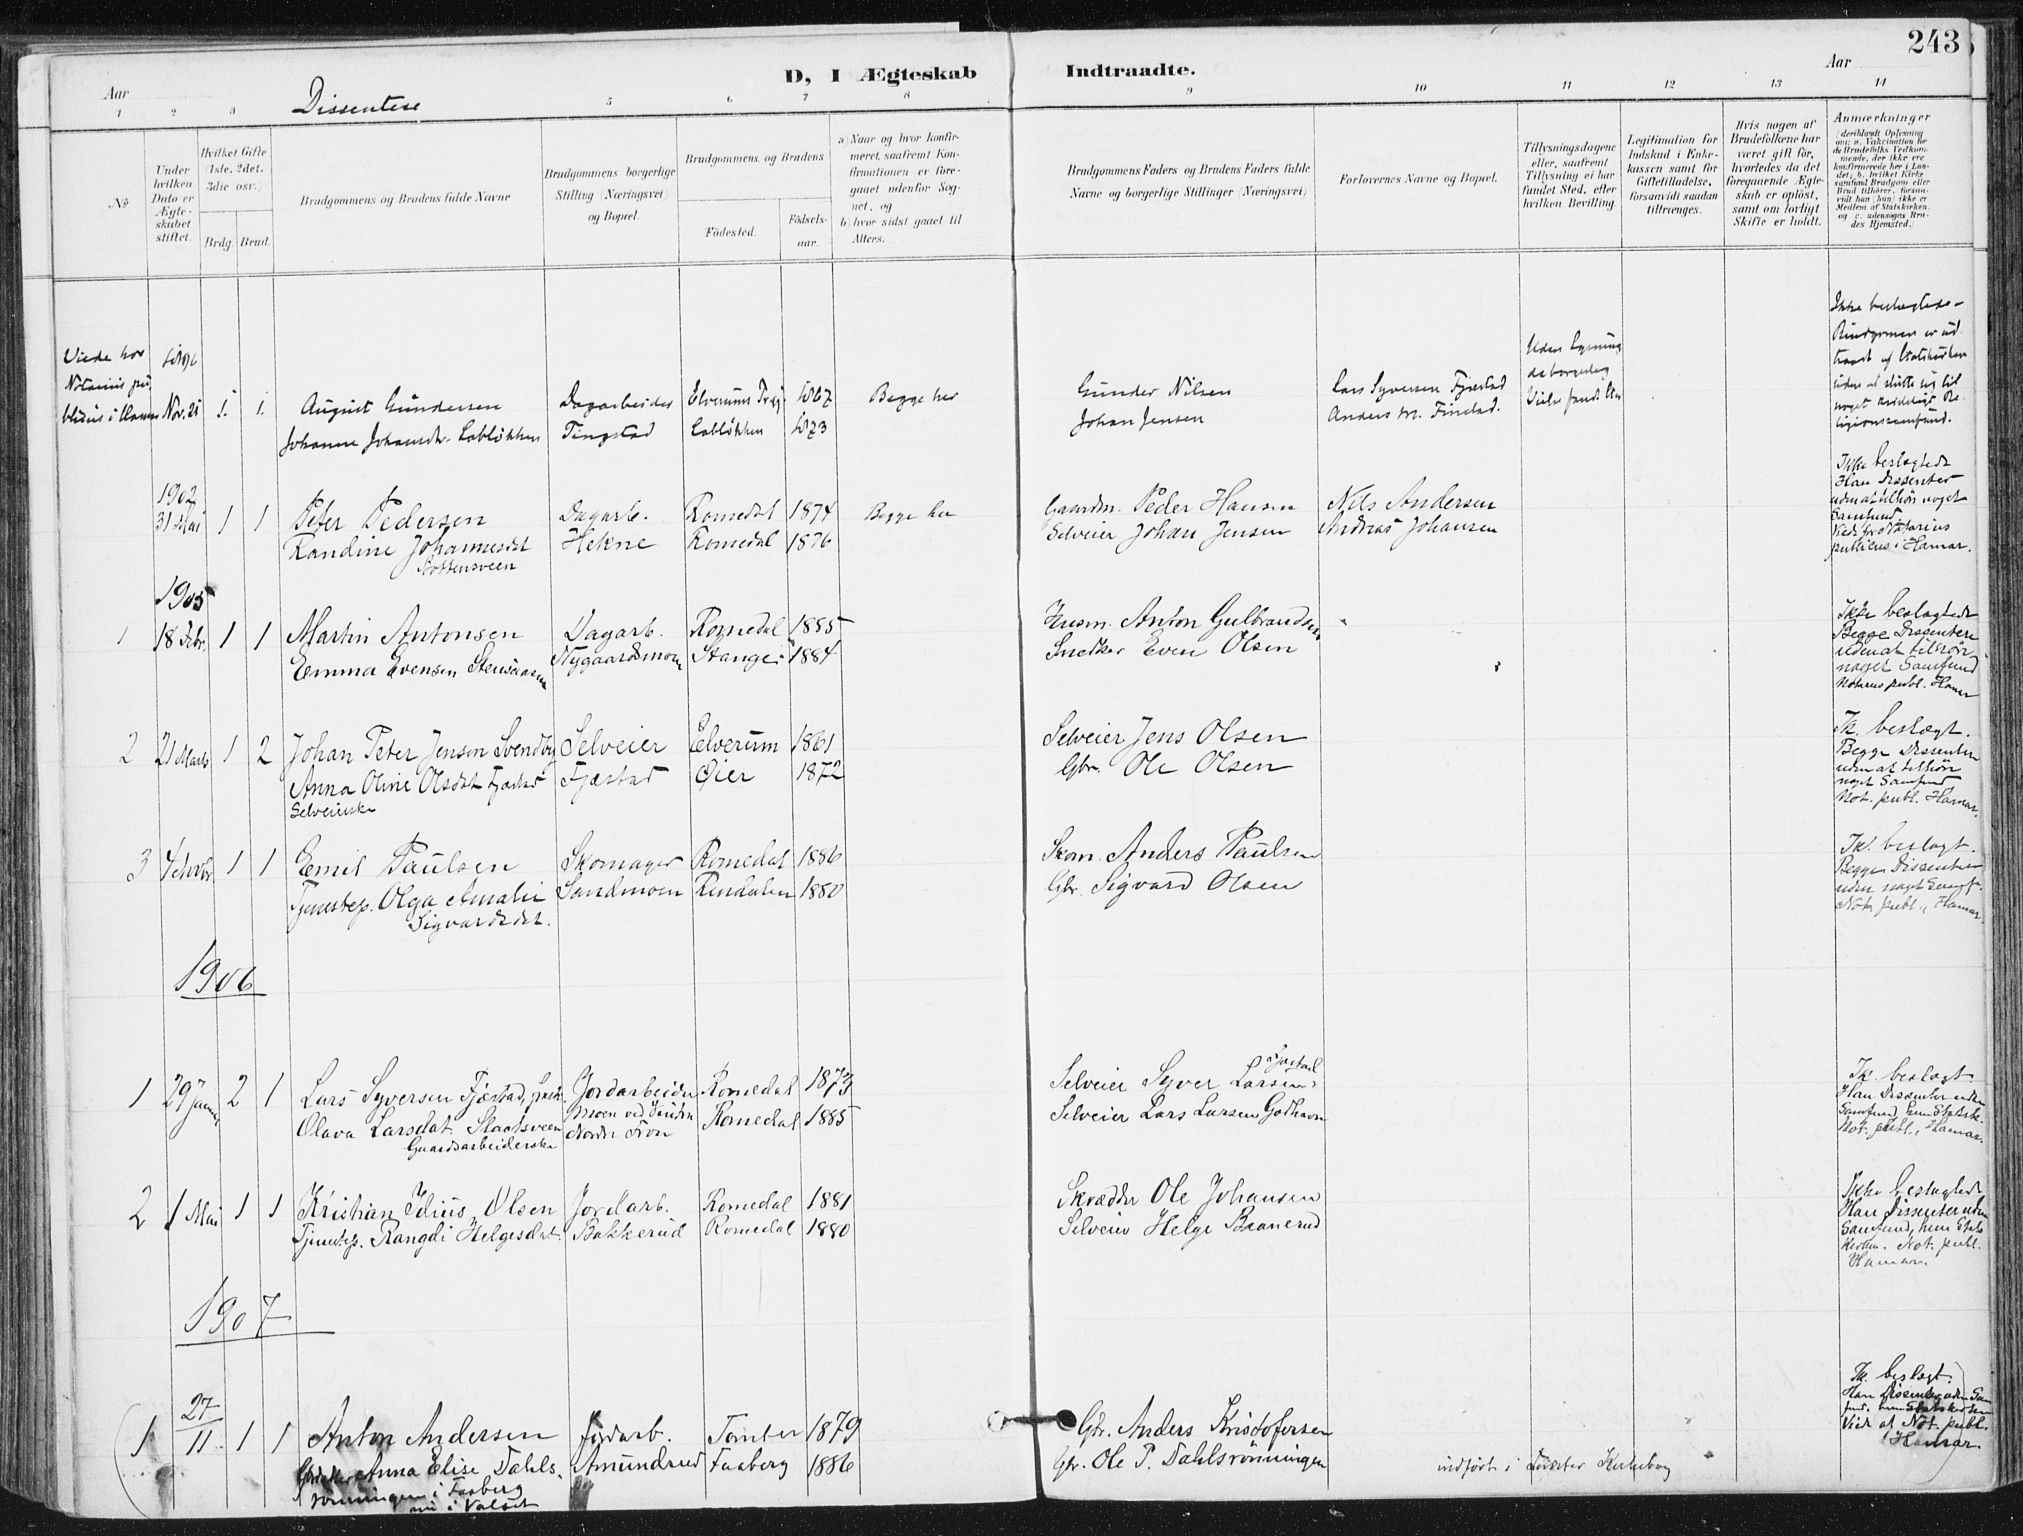 243
D, I Ægteskab Indtraadte.
Aar
Aar
Dissentere
1 2 3 5 6 7 8 9 10 11 12 13 14
No
Under hvilken Dato er Ægteskabet stiftet.
Hvilket Gifte (1ste, 2det, 3die osv.)
Brdg. Brud.
Brudgommens og Brudens fulde Navne
Brudgommens borgerlige Stilling (Næringsvei) og Bopæl.
Brudgommens og Brudens
Födested.
Födselsaar.
a) Naar og hvor konfirmeret, saafremt Konfirmationen er foregaaet udenfor Sognet, og
b) hvor sidst gaaet til Alters.
Brudgommens Faders og Brudens Faders fulde Navne og borgerlige Stillinger (Næringsvei)
Forlovernes Navne og Bopæl.
Tillysningsdagene eller, saafremt Tillysning ei har fundet Sted, efter hvilken Bevilling
Legitimation for Indskud i Enkekassen samt for Giftetilladelse, forsaavidt saadan tiltrænges.
Hvis nogen af Brudefolkene har været gift för, hvorledes da det foregaaende Ægteskab er oplöst, samt om lovligt Skifte er holdt.
Anmærkninger
Viede hos Notarius publicus i Hamar
Nov. 21 1. 1. August Gundersen Dagarbeider 1867 Begge her Gunder Nilsen Lars Syversen Fjæstad
Tingstad Labløkken 1873 Johan Jensen Anders M. Finstad.
1902
31 Mai 1 1 Peter Pedersen Dagarb. Romedal 1874 Begge her Gaardm. Peder Hansen Nils Andersen
Randine Johannesdt Hekne Romedal 1876 Selveier Johan Jensen Andreas Johansen
Ikke beslægtede Han Dissenter uden at tilhöre noget Samfund. Viet for Notarius publicus i Hamar.
1905
1 18 Febr. 1 1 Martin Antonsen Dagarb. Romedal 1885 Husm. Anton Gulbrandsen
Emma Evensen Nygaardsmoen Stange 1884 Snedker Even Olsen
Ikke beslægtede Begge Dissentere uden at tilhöre noget Samfund Notarius publ. Hamar
2 21 Marts 1 2 Johan Peter Jensen Svendby Selveier Elverum 1861 Selveier Jens Olsen
Anna Oline Olsdat Fjæstad Fjæstad Öier 1872 Gbr. Ole Olsen
Selveierske
Ik. beslægt. Begge Dissentere uden at tilhöre noget Samfund Not. publ. Hamar.
3 1 1 Emil Paulsen Skomager Romedal 1886 Skom. Anders Paulsen
Tjenestep. Olga Amalie Sandmoen Rendalen 1880 Gbr. Sigvard Olsen
Sigvardsdt.
Ik. beslægt. Begge Dissentere uden noget Samf. Not. publ., Hamar.
1906
1 29 Januar 2 1 Lars Syversen Fjæstad, Jordarbeider Romedal 1873 Selveier Syver Larsen Fjæstad
Olava Larsdat. Romedal 1885 Selveier Lars Larsen Godhavn
Gaardsarbeiderske
Ik. beslægt Han Dissenter uden Samfund, hun Statsk. Not. publ., Hamar.
2 1 Mai 1 1 Kristian Julius Olsen Jordarb. Romedal 1881 Skrædder Ole Johansen
Tjenestep. Rangdi Helgesdat. Bakkerud Romedal 1880 Selveier Helge Baanerud
Ikke beslægtede Han Dissenter uden Samfund, hun Stats Kirken. Not. publ. Hamar.
1907
1 27/11 1 1 Anton Andersen Jordarb. Tomter 1879 Gbr. Anders Kristofersen
Anna Elise Dahlsrönningen i Faaberg nu i Valset Amundrud Faaberg 1886 Gbr. Ole P. Dahlsrönningen indfört i Kirkebog
Ik. beslægt. Han Dissenter uden Samfund, hun Statskirken Viet af Not. publ. Hamar.